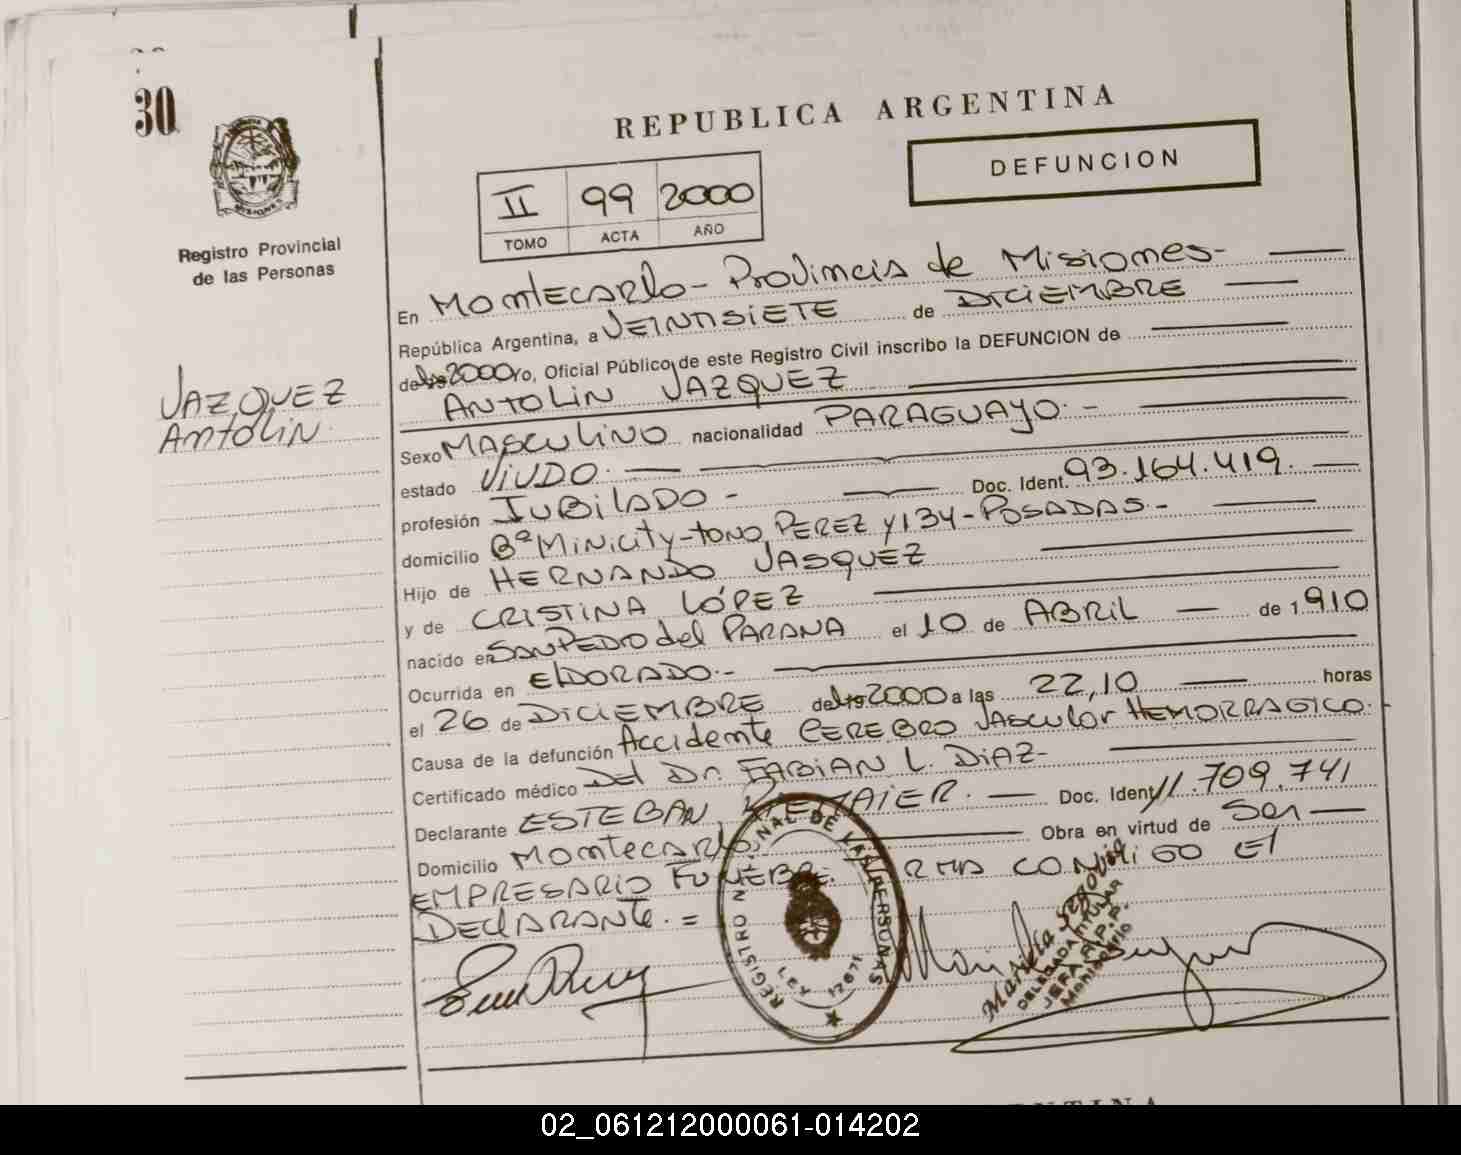 30
REPUBLICA ARGENTINA
DEFUNCION
II 99 2000
TOMO ACTA AÑO
Registro Provincial
de las Personas
VAZQUEZ
Antolin
En Montecarlo - Provincia de Misiones -
República Argentina, a VEINTISIETE de DICIEMBRE
de 2000 ro, Oficial Público de este Registro Civil inscribo la DEFUNCION de
ANTOLIN VAZQUEZ
Sexo MASCULINO nacionalidad PARAGUAYO. -
estado VIUDO. -
profesión JUBILADO - Doc. Ident. 93.164.419. -
domicilio Bº MINICITY - TONO PEREZ Y 134 - POSADAS. -
Hijo de HERNANDO VASQUEZ
y de CRISTINA LÓPEZ
nacido en SAN PEDRO del PARANA el 10 de ABRIL de 1.910
Ocurrida en ELDORADO. -
el 26 de DICIEMBRE de 2000 a las 22,10 horas
Causa de la defunción Accidente CEREBRO VASCULAR HEMORRAGICO. -
Certificado médico Del Dr. FABIAN L. DIAZ -
Declarante ESTEBAN Doc. Ident 11.709.741
Domicilio Montecarlo, Obra en virtud de Ser
EMPRESARIO FUNEBRE. CONMIGO El
DEClARANTE. =
REGISTRO NACIONAL DE LAS PERSONAS
LEY 12671
DELEGADA TITULAR
JEFA R.P.P.
Montecarlo
ENTINA
02_061212000061-014202